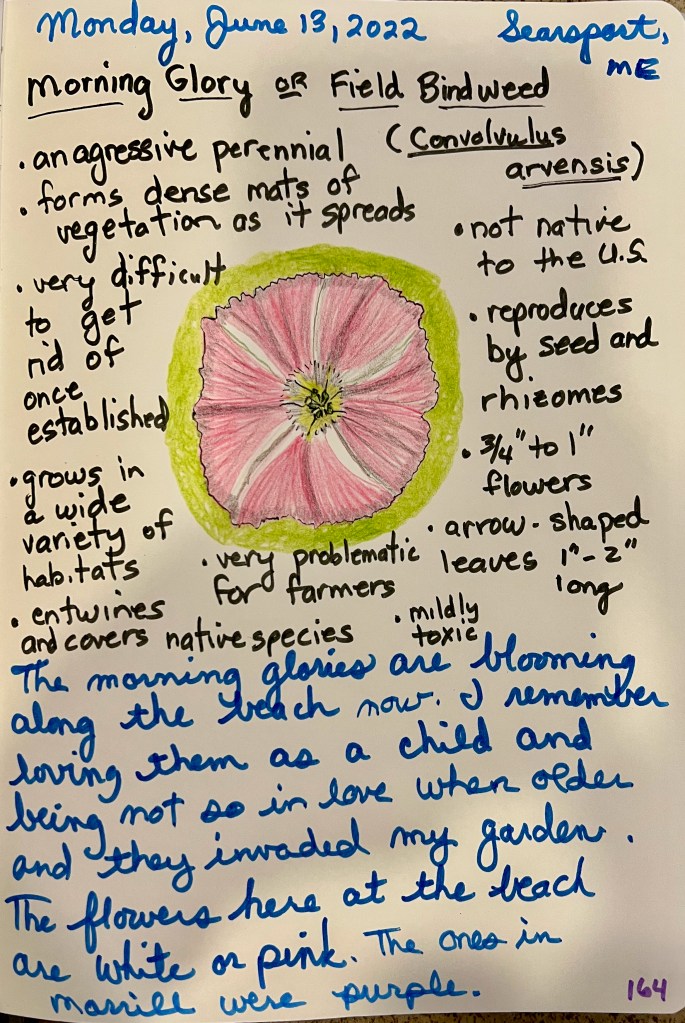 Monday, June 13, 2022 Searsport,
ME
Morning Glory OR Field Bindweed
(Convolvulus
arvensis)
• an agressive perennial
• forms dense mats of
vegetation as it spreads
• very difficult
to get
rid of
once
established
• grows in
a wide
variety of
habitats
• entwines
and covers native species
• very problematic
for farmers
• not native
to the U.S.
• reproduces
by seed and
rhizomes
• 3/4" to 1"
flowers
• arrow-shaped
leaves 1"-2"
long
• mildly
toxic
The morning glories are blooming
along the beach now. I remember
loving them as a child and
being not so in love when older
and they invaded my garden.
The flowers here at the beach
are white or pink. The ones in
Morrill were purple.
164